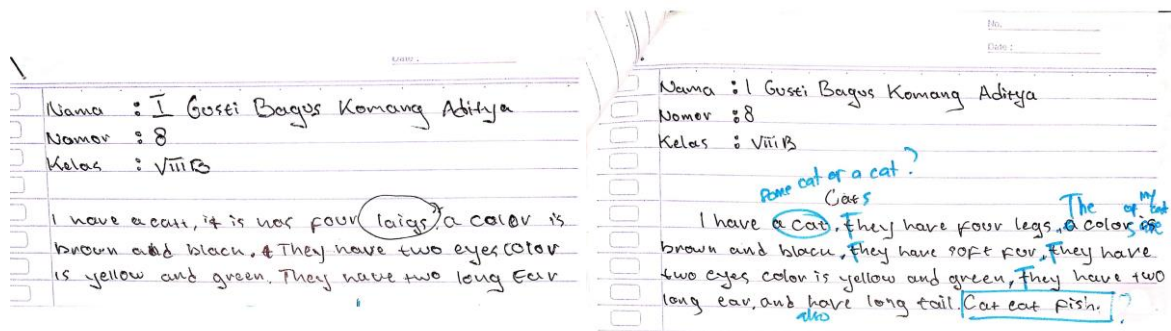 Date :
Nama : I Gusti Bagus Komang Aditya
Nomor : 8
Kelas : VIII B
I have a catt, it is has four laigs ? a color is
brown and black. They have two eyes color
is yellow and green. They have two long Ear
No.
Date :
Nama : I Gusti Bagus Komang Aditya
Nomor : 8
Kelas : VIII B
some cat or a cat ?
Cats
The of my cat
I have a cat, They have four legs, a color is
brown and black, They have soft fur, They have
two eyes color is yellow and green, They have two
long ear, and have long tail. Cat eat fish. ?
also